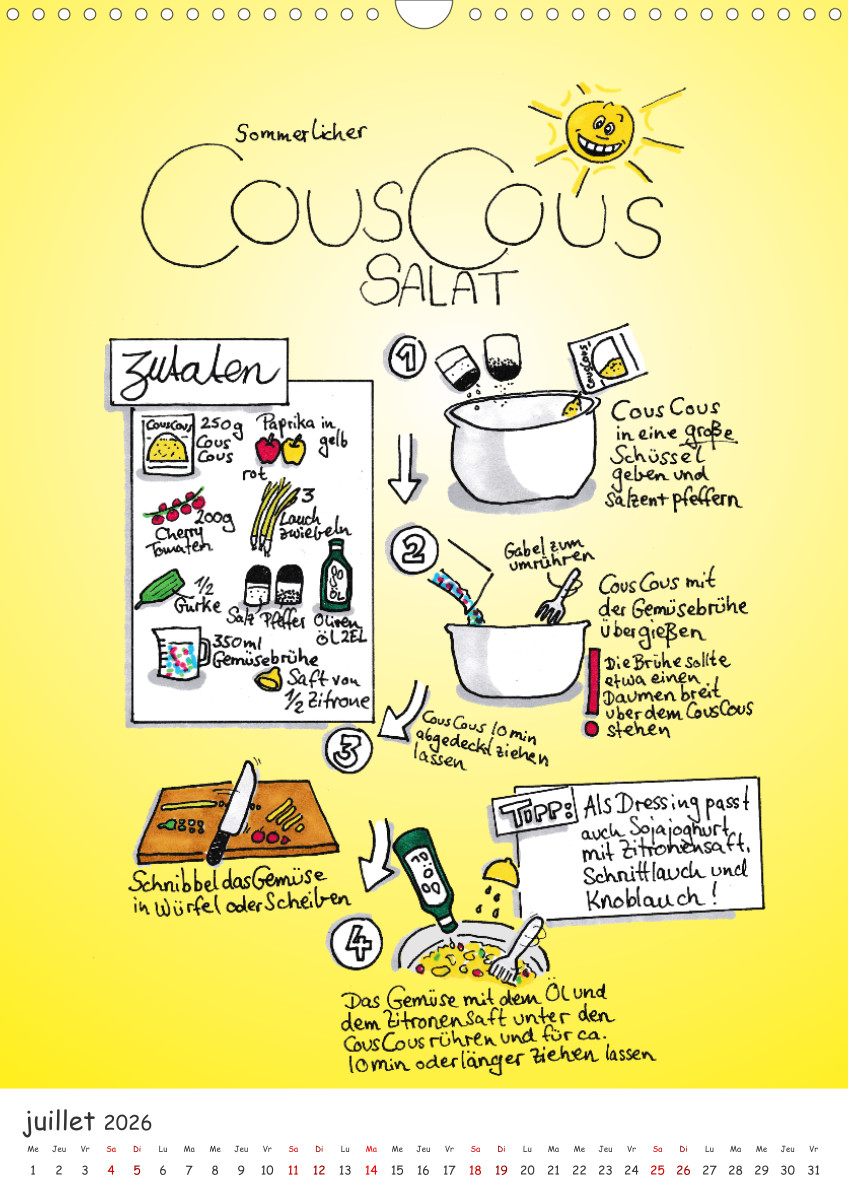 Sommerlicher
CousCous
SALAT
Zutaten
CousCous
250g
Cous
Cous
Paprika in
gelb
rot
200g
Cherry
Tomaten
3
Lauch
zwiebeln
1/2
Gurke
Salz
Pfeffer
ÖL
Oliven
ÖL 2EL
350ml
Gemüsebrühe
Saft von
1/2 Zitrone
1
CousCous
CousCous
in eine große
Schüssel
geben und
Salzen t pfeffern
2
Gabel zum
umrühren
CousCous mit
der Gemüsebrühe
übergießen
! Die Brühe sollte
etwa einen
Daumen breit
über dem CousCous
stehen
CousCous 10 min
abgedeckt ziehen
lassen
3
Schnibbel das Gemüse
in Würfel oder Scheiben
Tipp:
Als Dressing passt
auch Sojajoghurt
mit Zitronensaft,
Schnittlauch und
Knoblauch!
4
Das Gemüse mit dem Öl und
dem Zitronensaft unter den
CousCous rühren und für ca.
10min oder länger ziehen lassen
juillet 2026
Me Jeu Vr Sa Di Lu Ma Me Jeu Vr Sa Di Lu Ma Me Jeu Vr Sa Di Lu Ma Me Jeu Vr Sa Di Lu Ma Me Jeu Vr
1 2 3 4 5 6 7 8 9 10 11 12 13 14 15 16 17 18 19 20 21 22 23 24 25 26 27 28 29 30 31